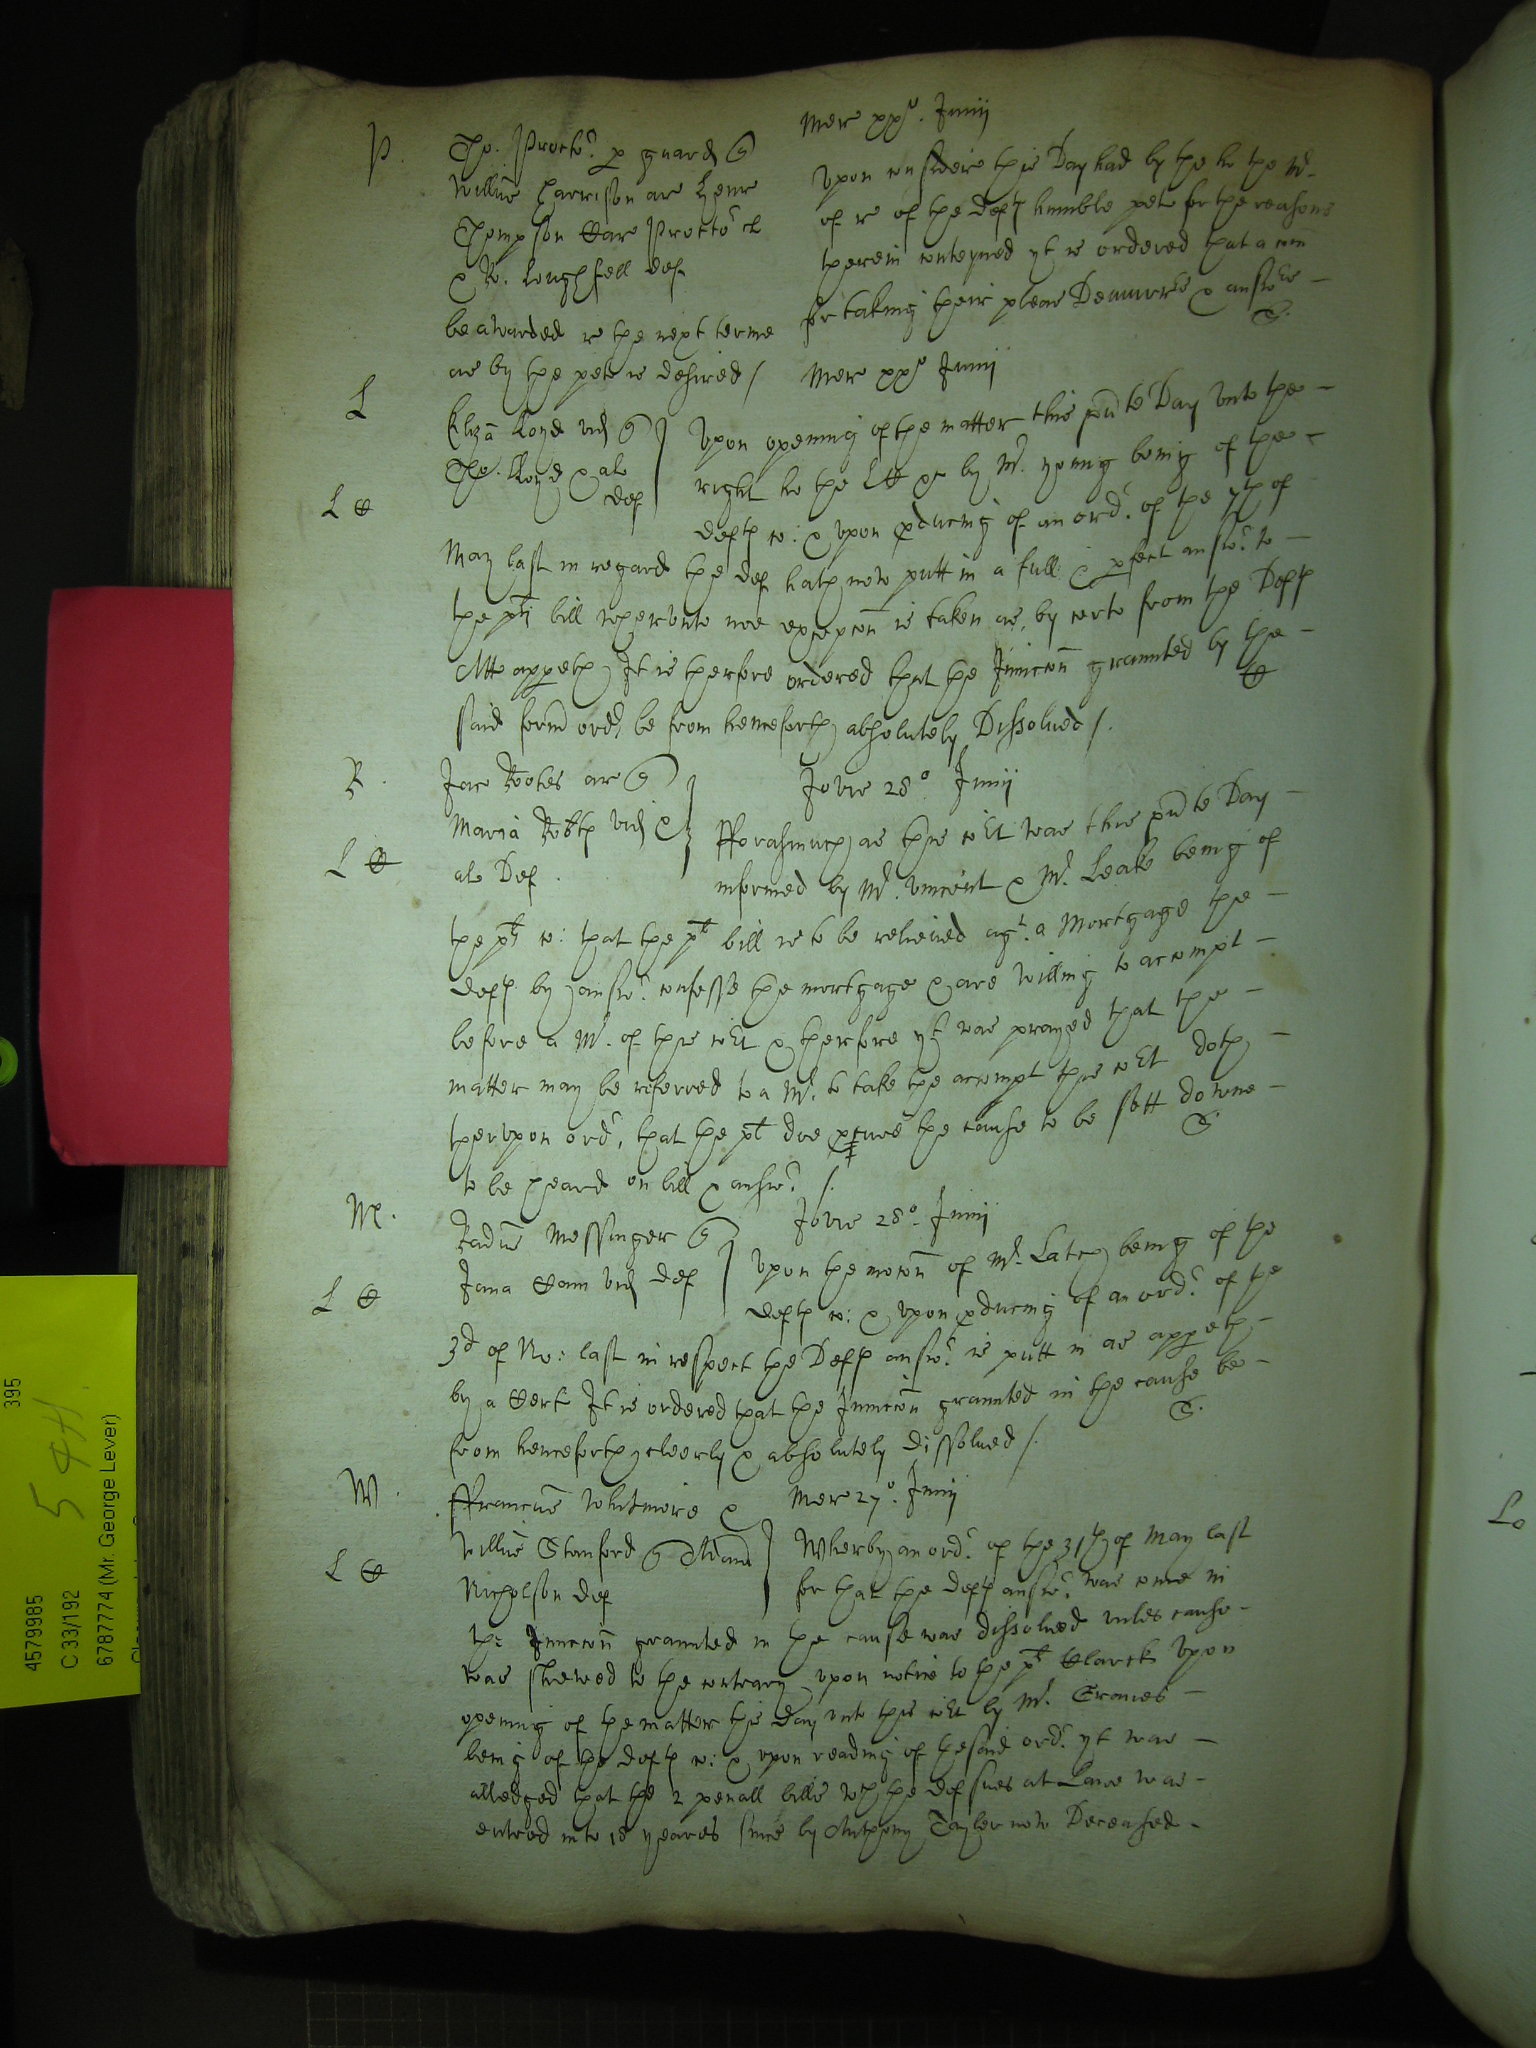 Mer xx° Junij
P. Tho. Procto: p guard &
Willm Harrison ar Henr
Thompson Mar Procto: cl
& Ro. Loughfell def
Upon considerc this Day had by the ho the Mr.
of re of the deft humble peto for the reasons
therein conteyned yt is ordered that a com
for taking their pleas Demurre & answere
be awarded re the next terme
as by the peto is desired /
S.
Mer xx° Junij
L Eliza Loyd vid &
Tho. Lloyd & al
def
L
Upon opening of the matter this pnte Day unto the
right ho the by Mr. yonng being of the
deft co: & upon pducing of an ord: of the 7th of
May last in regard the def hath now putt in a full & pfect answ: to
the plt bill wherunto noe excepcon is taken as by certe from the Deft
Atto appeth It is therfore ordered that the Iniuccon graunted by the
said form ord: be from henceforth absolutely Dissolved /.
R. Jac Rookes ar &
Maria Robts vid &
al Def.
L
Jovis 28° Junij
fforasmuch as this coUt was this pnte Day
informed by Mr. Vincent & Mr. Leake being of
the plt co: that the plt bill is to be relieved agt. a Mortgage the
deft by answ: confesse the mortgage & are willing to accompt
before a Mr. of this coUt & therfore yt was prayed that the
matter may be referred to a Mr. to take the accompt this coUt doth
therupon ord: that the plt doe pcure the cause to be sett downe
to be heard on bill & answ: /.
S.
M. Radus Messinger &
Jana vid def
L
Jovis 28° Junij
Upon the mocon of Mr. Latch being of the
deft co: & upon pducing of an ord: of the
3d of No: last in respect the Deft answ: is putt in as appeth
by a Cert It is ordered that the Iniuccon graunted in the cause be
from henceforth cleerly & absolutely dissolved /.
S.
W. ffranciscus Whitmore &
Willm Stanford & Adam
Nicholson def
L
Mer 27° Junij
Wherby an ord: of the 31th of May last
for that the deft answ: was come in
the Iniuccon graunted in the cause was dissolved unles cause
was shewed to the contrary upon notice to the plt Clarck Upon
opening of the matter this day unto this coUt by Mr.
being of the deft co: & upon reading of the said ord: yt was
alledged that the 2 penall bills wch the def sues at Lawe was
entred into 18 yeares since by Anthony Tayler now Deceased
395
5
4579985
C 33/192
6787774 (Mr. George Lever)